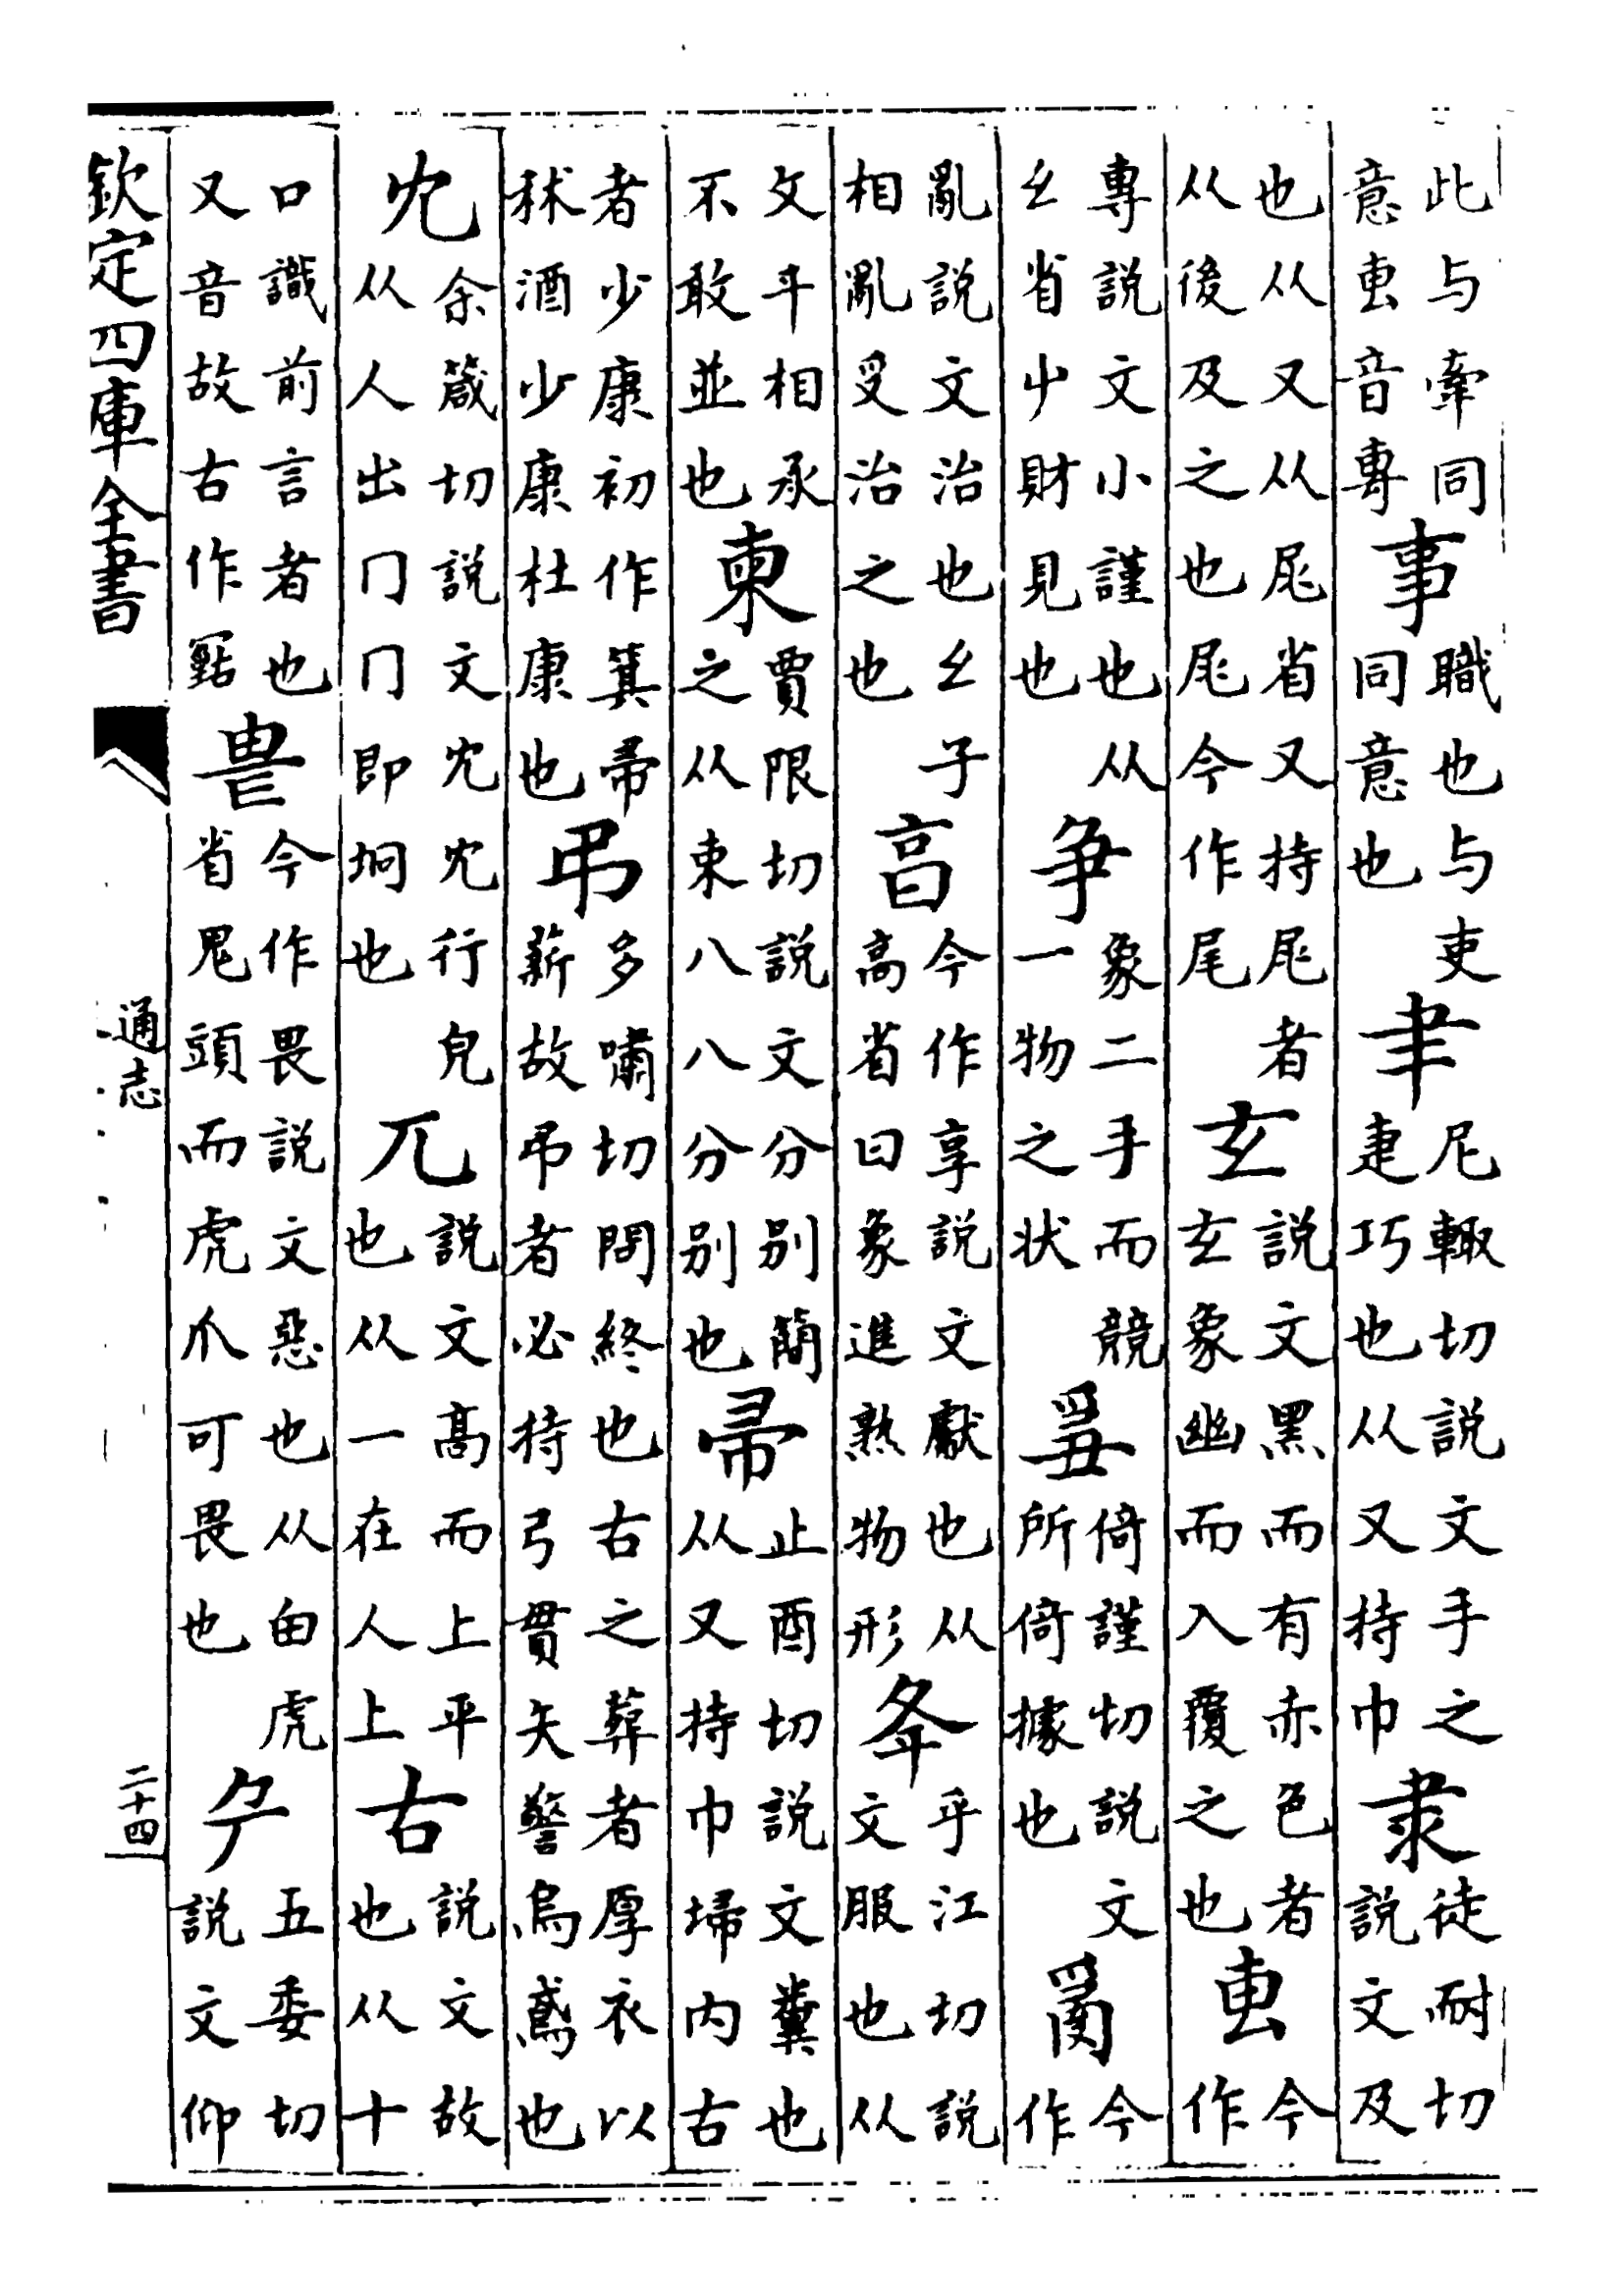 此与牽同意叀音專事職也与吏同意也肀尼輙切説文手之疌巧也从又持巾隶徒耐切説文及
也从又从尾省又持尾者从後及之也尾今作尾玄説文黒而有赤色者玄象幽而入覆之也叀今作
專説文小謹也从幺省屮財見也爭象二手而競一物之状㥯倚謹切説文所倚據也𤔔今作
亂説文治也幺子相亂𠬪治之也亯今作享説文獻也从高省曰象進熟物形夅乎江切説文服也从
夊㐄相承不敢並也柬賈限切説文分别簡之从束八八分别也帚止酉切説文糞也从又持巾埽内古
者少康初作箕帚秫酒少康杜康也弔多嘯切問終也古之葬者厚衣以薪故弔者必持弓貫矢警烏鳶也
冘余箴切説文冘冘行皃从人出冂冂即坰也兀説文高而上平也从一在人上古説文故也从十
口識前言者也又音故古作𠖠畏今作畏説文惡也从甶虎省鬼頭而虎爪可畏也厃五委切説文仰
欽定四庫全書
通志
二十四